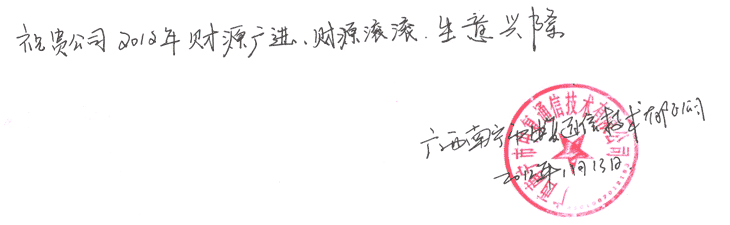 祝贵公司2012年财源广进、财源滚滚.生意兴隆
广西南宁市 通信技术有限公司
2012年1月13日.